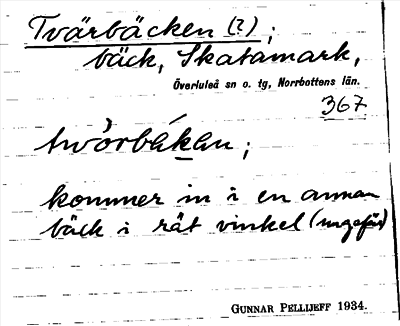 Tvärbäcken (?);
bäck, Skatamark,
Överluleå sn o. tg, Norrbottens län.
367
twörbákan;
kommer in i en annan
bäck i rät vinkel (ungefär)
GUNNAR PELLIJEFF 1934.